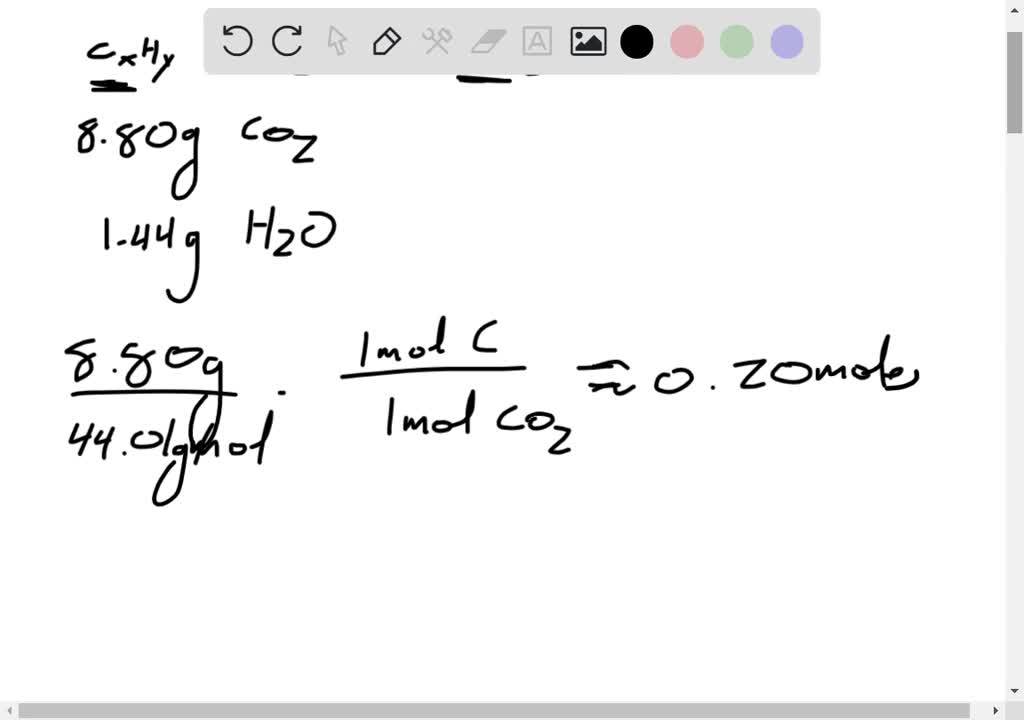 CxHy
8.80g CO2
1.44g H2O
8.80g / 44.01g/mol · 1mol C / 1mol CO2 ≈ 0.20moles
A